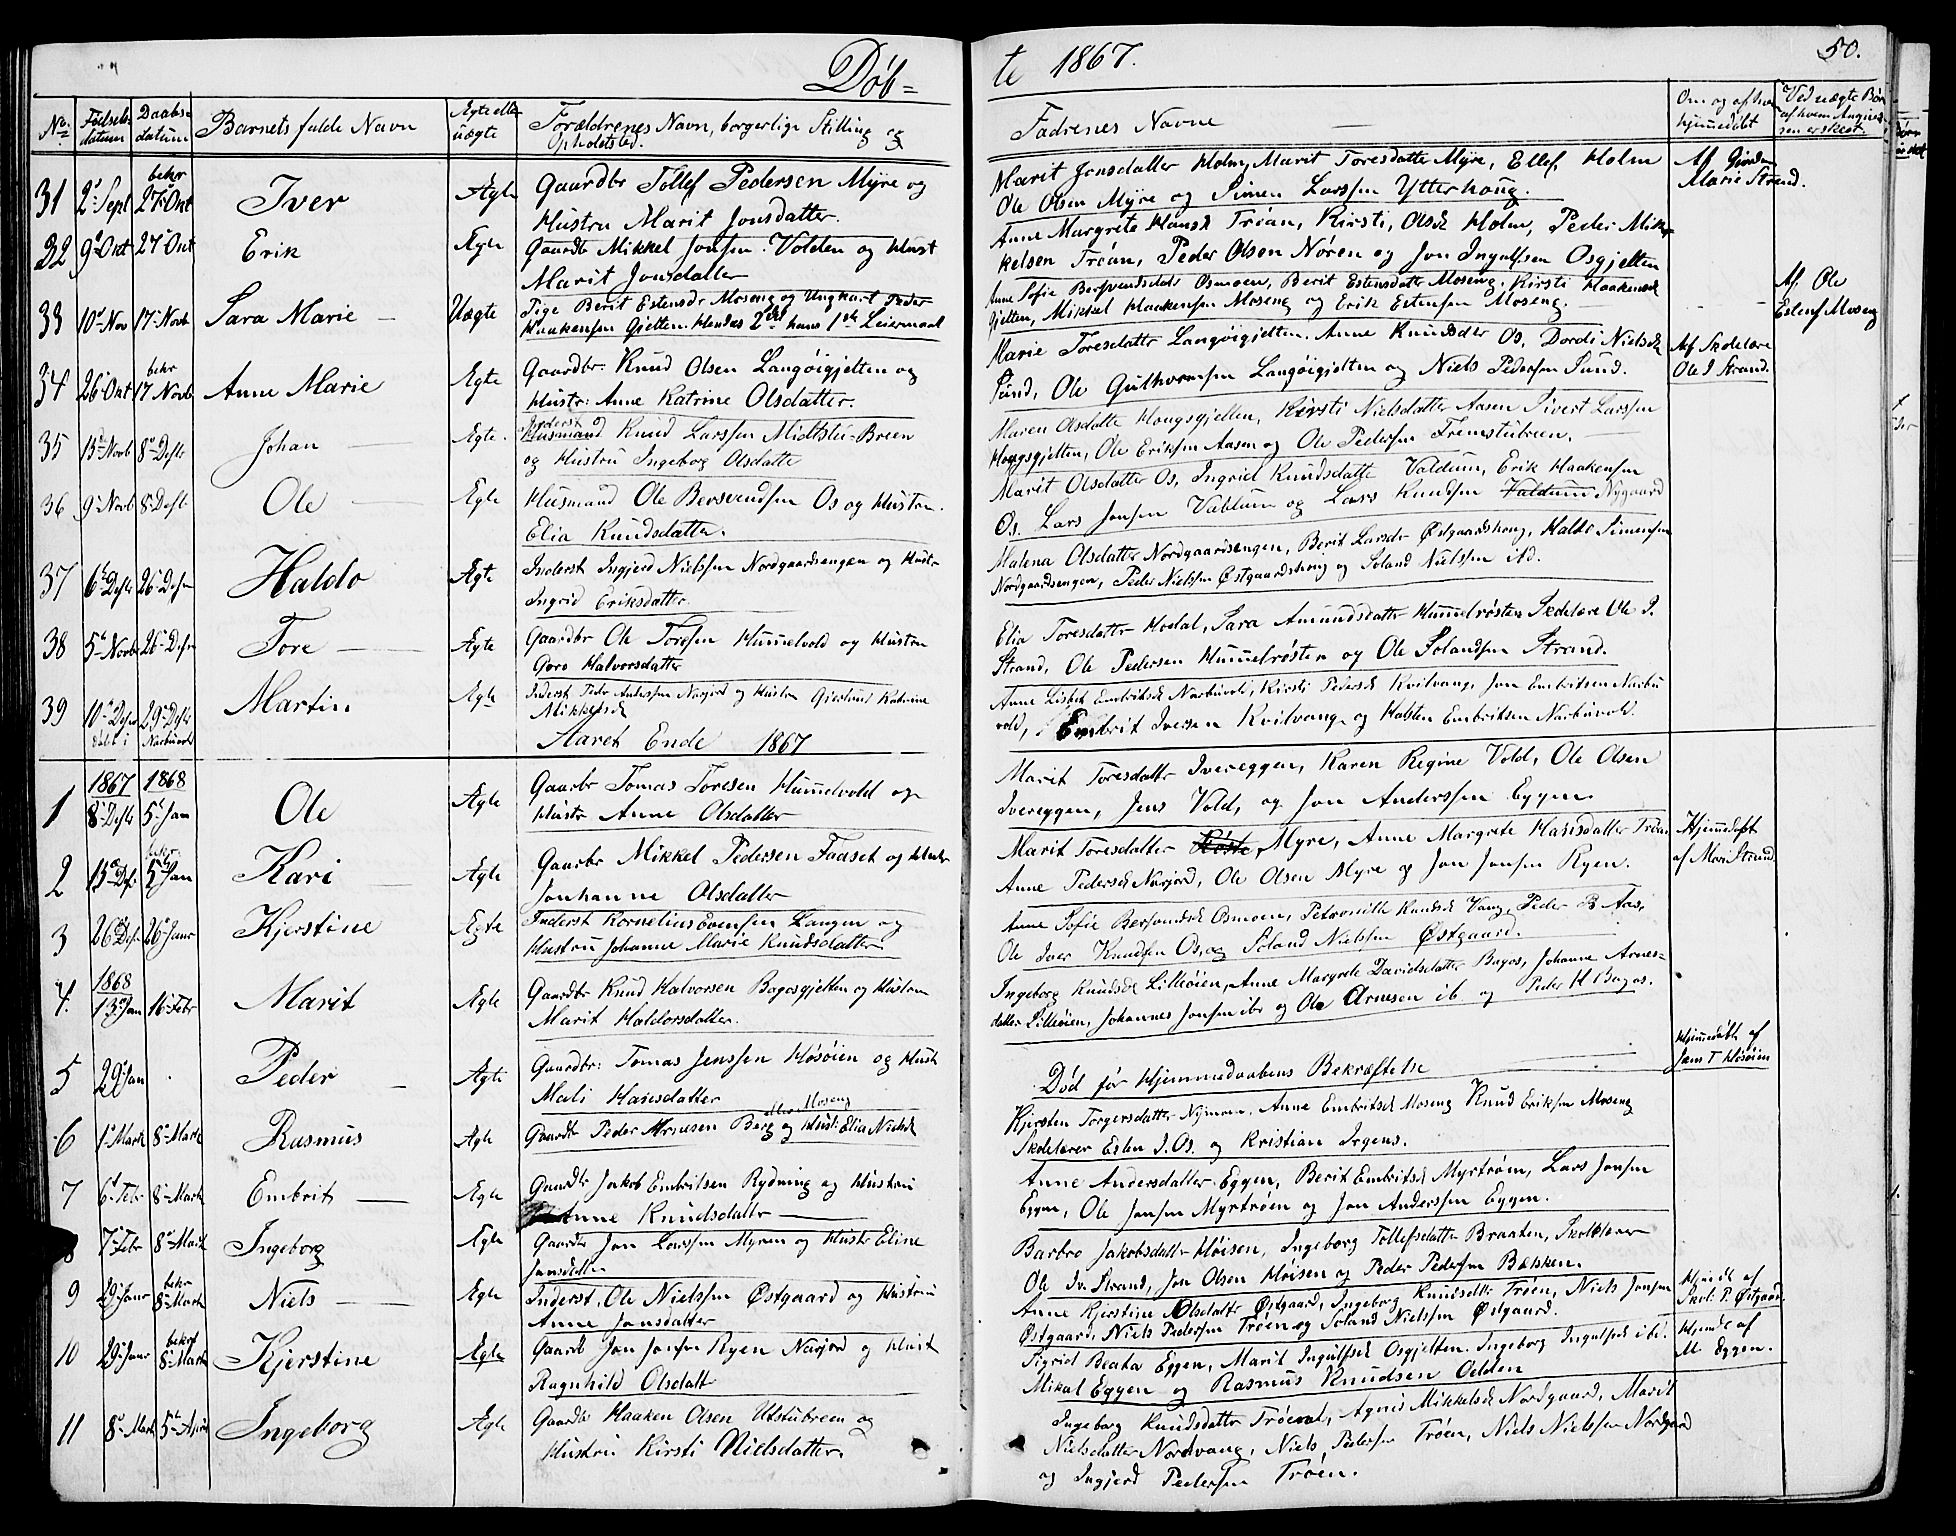 Døb=
te 1867.
50.
No. Fødsels datum Daabs datum Barnets fulde Navn Egte eller uægte Forældrenes Navn, borgerlige Stilling og Opholdsted. Fadrenes Navne Om og af hvem hjemmedøbt Ved uægte Børn af hvem Angivelsen er skeet.
31 2 Sept bekr 27 Okt Iver Ægte Gaardbr Tollef Pedersen Myre og
Hustru Marit Jonsdatter.
Marit Jonsdatter Holm, Marit Toresdatter Myre, Ellef Holm
Ole Olsen Myre og Simen Larssen Ytterhoug.
Af
Marie Strand.
32 9 Okt 27 Okt Erik Ægte Gaardb Mikkel Jonsen Volden og Hust
Marit Jonsdatter
Anne Margrete Hansd Trøan, Kirsti Olsd Holm, Peder Mik-
kelsen Trøan, Peder Olsen Nøren og Jon Ingulfsen Osgjelten
33 10 Nov 17 Novb Sara Marie Uægte Pige Berit Estensdr Moseng og Ungkarl Peder
Haakensen Gjelten. Hendes 2det hans 1ste Leiermaal
Anne Sofie Bersvendsdatr Osmoen, Berit Estensdatter Moseng, Kirsti Haakensd
Gjelten, Mikkel Haakensen Moseng og Erik Estensen Moseng.
Af Ole
Estens Moseng
34 26 Okt bekr 17 Novb Anne Marie Egte Gaardbr. Knud Olsen Langøigjelten og
Hustr. Anne Katrine Olsdatter.
Marie Toresdatter Langøigjelten. Anne Knudsdtr Os, Dordi Nielsd
Sund, Ole Guthormsen Langøigjelten og Niels Pedersen Sund.
Af Skolelære
Ole I Strand.
35 13 Novb 8 Desbr Johan Egte. Inderst
Husmand Knud Larssen Midtstu-Breen
og Hustru Ingeborg Olsdatte
Maren Olsdatte Hougsgjelten, Kirsti Nielsdatter Aasen Sivert Larssen
Hougsgjelten, Ole Eriksen Aasen og Ole Pedersen Fremstubreen.
36 9 Novb 8 Desb. Ole Egte Husmand Ole Bersvendsen Os og Hustru.
Elia Knudsdatter.
Marit Olsdatter Os, Ingrid Knudsdatte Valdum, Erik Haakensen
Os. Lars Jonsen Valdum og Lars Knudsen Valdum Nygaard
37 6 Desbr 26 Desbr Haldo Ægte Inderst Ingjerd Nielssen Nordgaardsengen og Hustr
Ingrid Eriksdatter.
Malena Olsdatter Nordgaardsengen, Berit Larsdr Østgaardshoug, Haldo Simensen
Nordgaardsengen, Peder Nielssen Østgaardshoug og Soland Nielssen ibd.
38 5 Novb 26 Desbr Tore Ægte Gaardbr Ole Toresen Hummelvold og Hustru
Goro Halvorsdatter
Elia Toresdatter Hodal, Sara Amundsdatter Hummelrøsten Skolelære Ole I.
Strand, Ole Pedersen Hummelrøsten og Ole Solandsen Strand.
39 10 Desbr 29 Desbr
døbt i Narbuvold Martin Egte Inderst Pedr Andersen Narjord og Hustru Gjertrud Katrine
Mikkelsd
Anne Lisbet Embriksd Narbuvold, Kirsti Pedersd Kvilvang, Jon Embriksen Narbu
vold, Embrit Iversen Kvilvang og Halsten Embriksen Narbuvold.
Aaret Ende 1867
1867 1868
1 8 Desbr 5 Jan Ole Ægte Gaarbr Tomas Toresen Hummelvold og
Hustr Anne Olsdatter
Marit Toresdattr Ivereggen, Karen Regine Vold, Ole Olsen
Ivereggen, Jens Vold, og Jon Anderssen Eggen
2 15 Des bekr 5 Jan Kari Ægte Gaarbr Mikkel Pedersen Faaset og Hustr
Jonhanne Olsdatter
Marit Toresdatter Røste, Myre, Anne Margrete Hansdatter Trøan
Anne Pedersd Narjord, Ole Olsen Myre og Jon Jonsen Ryen.
Hjemmedøbt
af Mari Strand
3 26 Desbr 26 Janr Kjerstine Egte Inderst Kornelius Evensen Langen og
Hustru Johanne Marie Knudsdatter
Anne Sofie Bersvendsd Osmoen, Petronille Knudsd Vang, Peder B Aas,
Ole Iver Knudsen Os, og Soland Nielssen Østgaard.
1868
4. 13 Jan 16 Febr Marit Ægte Gaardbr Knud Halvorsen Bagosgjelten og Hustru
Marit Haldorsdatter.
Ingeborg Knudsd Lilleøien, Anne Margrete Davidsdatter Bagos, Johanne Arnes-
datter Lilleøien, Johannes Jonsen ibr og Ole Arnesen ib og Peder H Bagos.
5 29 Jan Peder Ægte Gaardbr: Tomas Jenssen Høsøien og Hust
Mali Hansdatter
Død før Hjemmedaabens Bekræftelse
Hjemmedøbt af
Jens T Høsøien
6 1 Marts 8 Marts Rasmus Ægte Gaardb Peder Arnesen Berg eller Moseng og Hust: Elia Nielsd
Kjersten Torgersdatter Nymoen, Anne Embritsd Moseng Knud Eriksen Moseng
Skolelærer Esten I. Os. og Kristian Irgens.
7 6 Febr 8 Marts Embrit Egte Gaardb Jakob Embritsen Rydning og Hustru
Anne Knudsdatter
Anne Andersdatter Eggen, Berit Embritsd Myrtrøen, Lars Jonsen
Eggen, Ole Jonsen Myrtrøen og Jon Anderssen Eggen.
8 7 Febr 8 Marts Ingeborg Egte Gaardb Jon Larssen Myren og Hustr Eline
Jonsdatter
Barbro Jakobsdattr Høisen, Ingeborg Tollefsdatter Braaten, Skolelærer
Ole Iv. Strand, Jon Olsen Høisen og Peder Pedersen Bækken.
9 29 Janr bekr 8 Marts Niels Egte Inderst. Ole Nielssen Østgaard og Hustru
Anne Jonsdatter
Anne Kjerstine Olsdattr Østgaard, Ingeborg Knudsdtr Trøen, Niels Jonsen
Østgaard, Niels Pedersen Trøen og Soland Nielssen Østgaard.
Hjemdt af
Skol. P. Østgaar.
10 29 Janr bekræf 8 Marts Kjerstine Egte Gaardb Jon Jonsen Ryen Narjord og Hust
Ragnhild Olsdatt
Sigrid Beata Eggen, Marit Ingulfsd Osgjelten. Ingeborg Ingulfsd ibi.
Mikal Eggen og Rasmus Knudsen Odden
Hjemdt af
M. Eggen.
11 8 Marts 5 April Ingeborg Ægte Gaardb Haaken Olsen Utstubreen og
Hustru Kirsti Nielsdatter.
Ingeborg Knudsdatter Trøen, Agnis Mikkelsd Nordgaard, Marit
Nielsdatter Nordvang, Niels Pedersen Trøen, Niels Nielssen Nordgaard
og Ingjerd Pedersen Trøen.